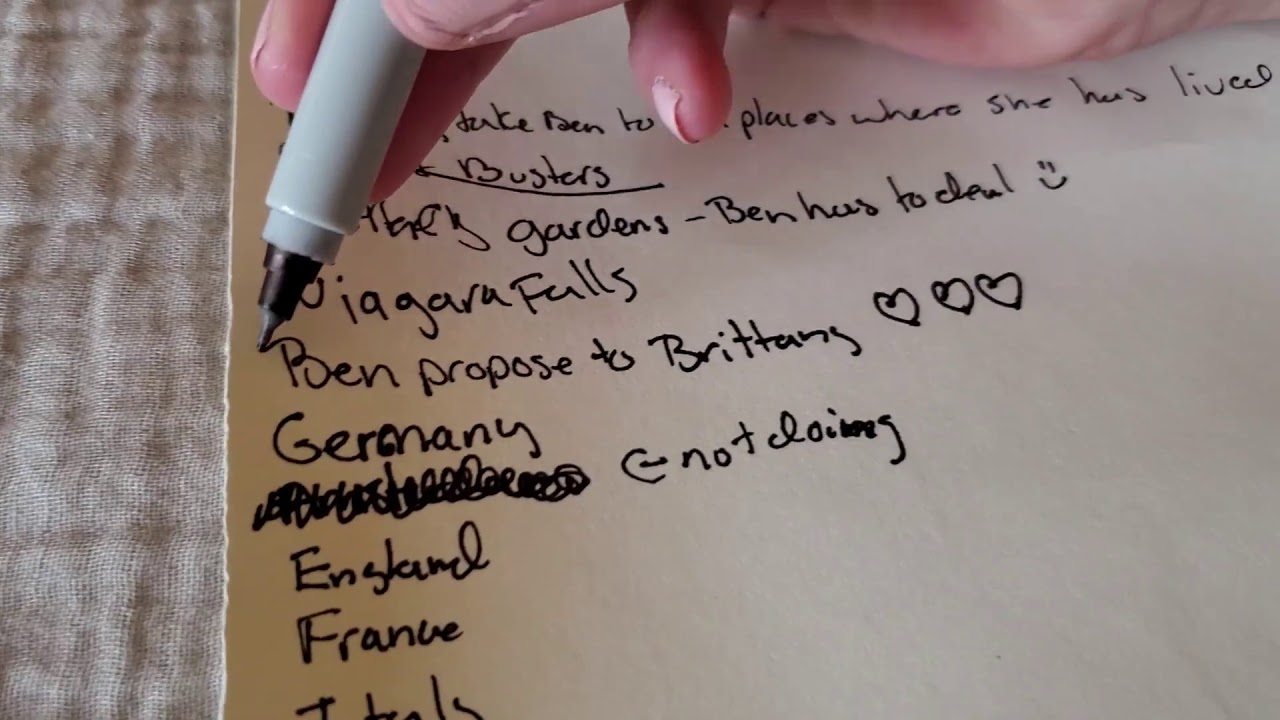 take Ben to places where she has lived
& Busters
gardens - Ben has to deal :)
Niagara Falls
Ben propose to Brittany ♡♡♡
Germany
← not doing
England
France
Italy